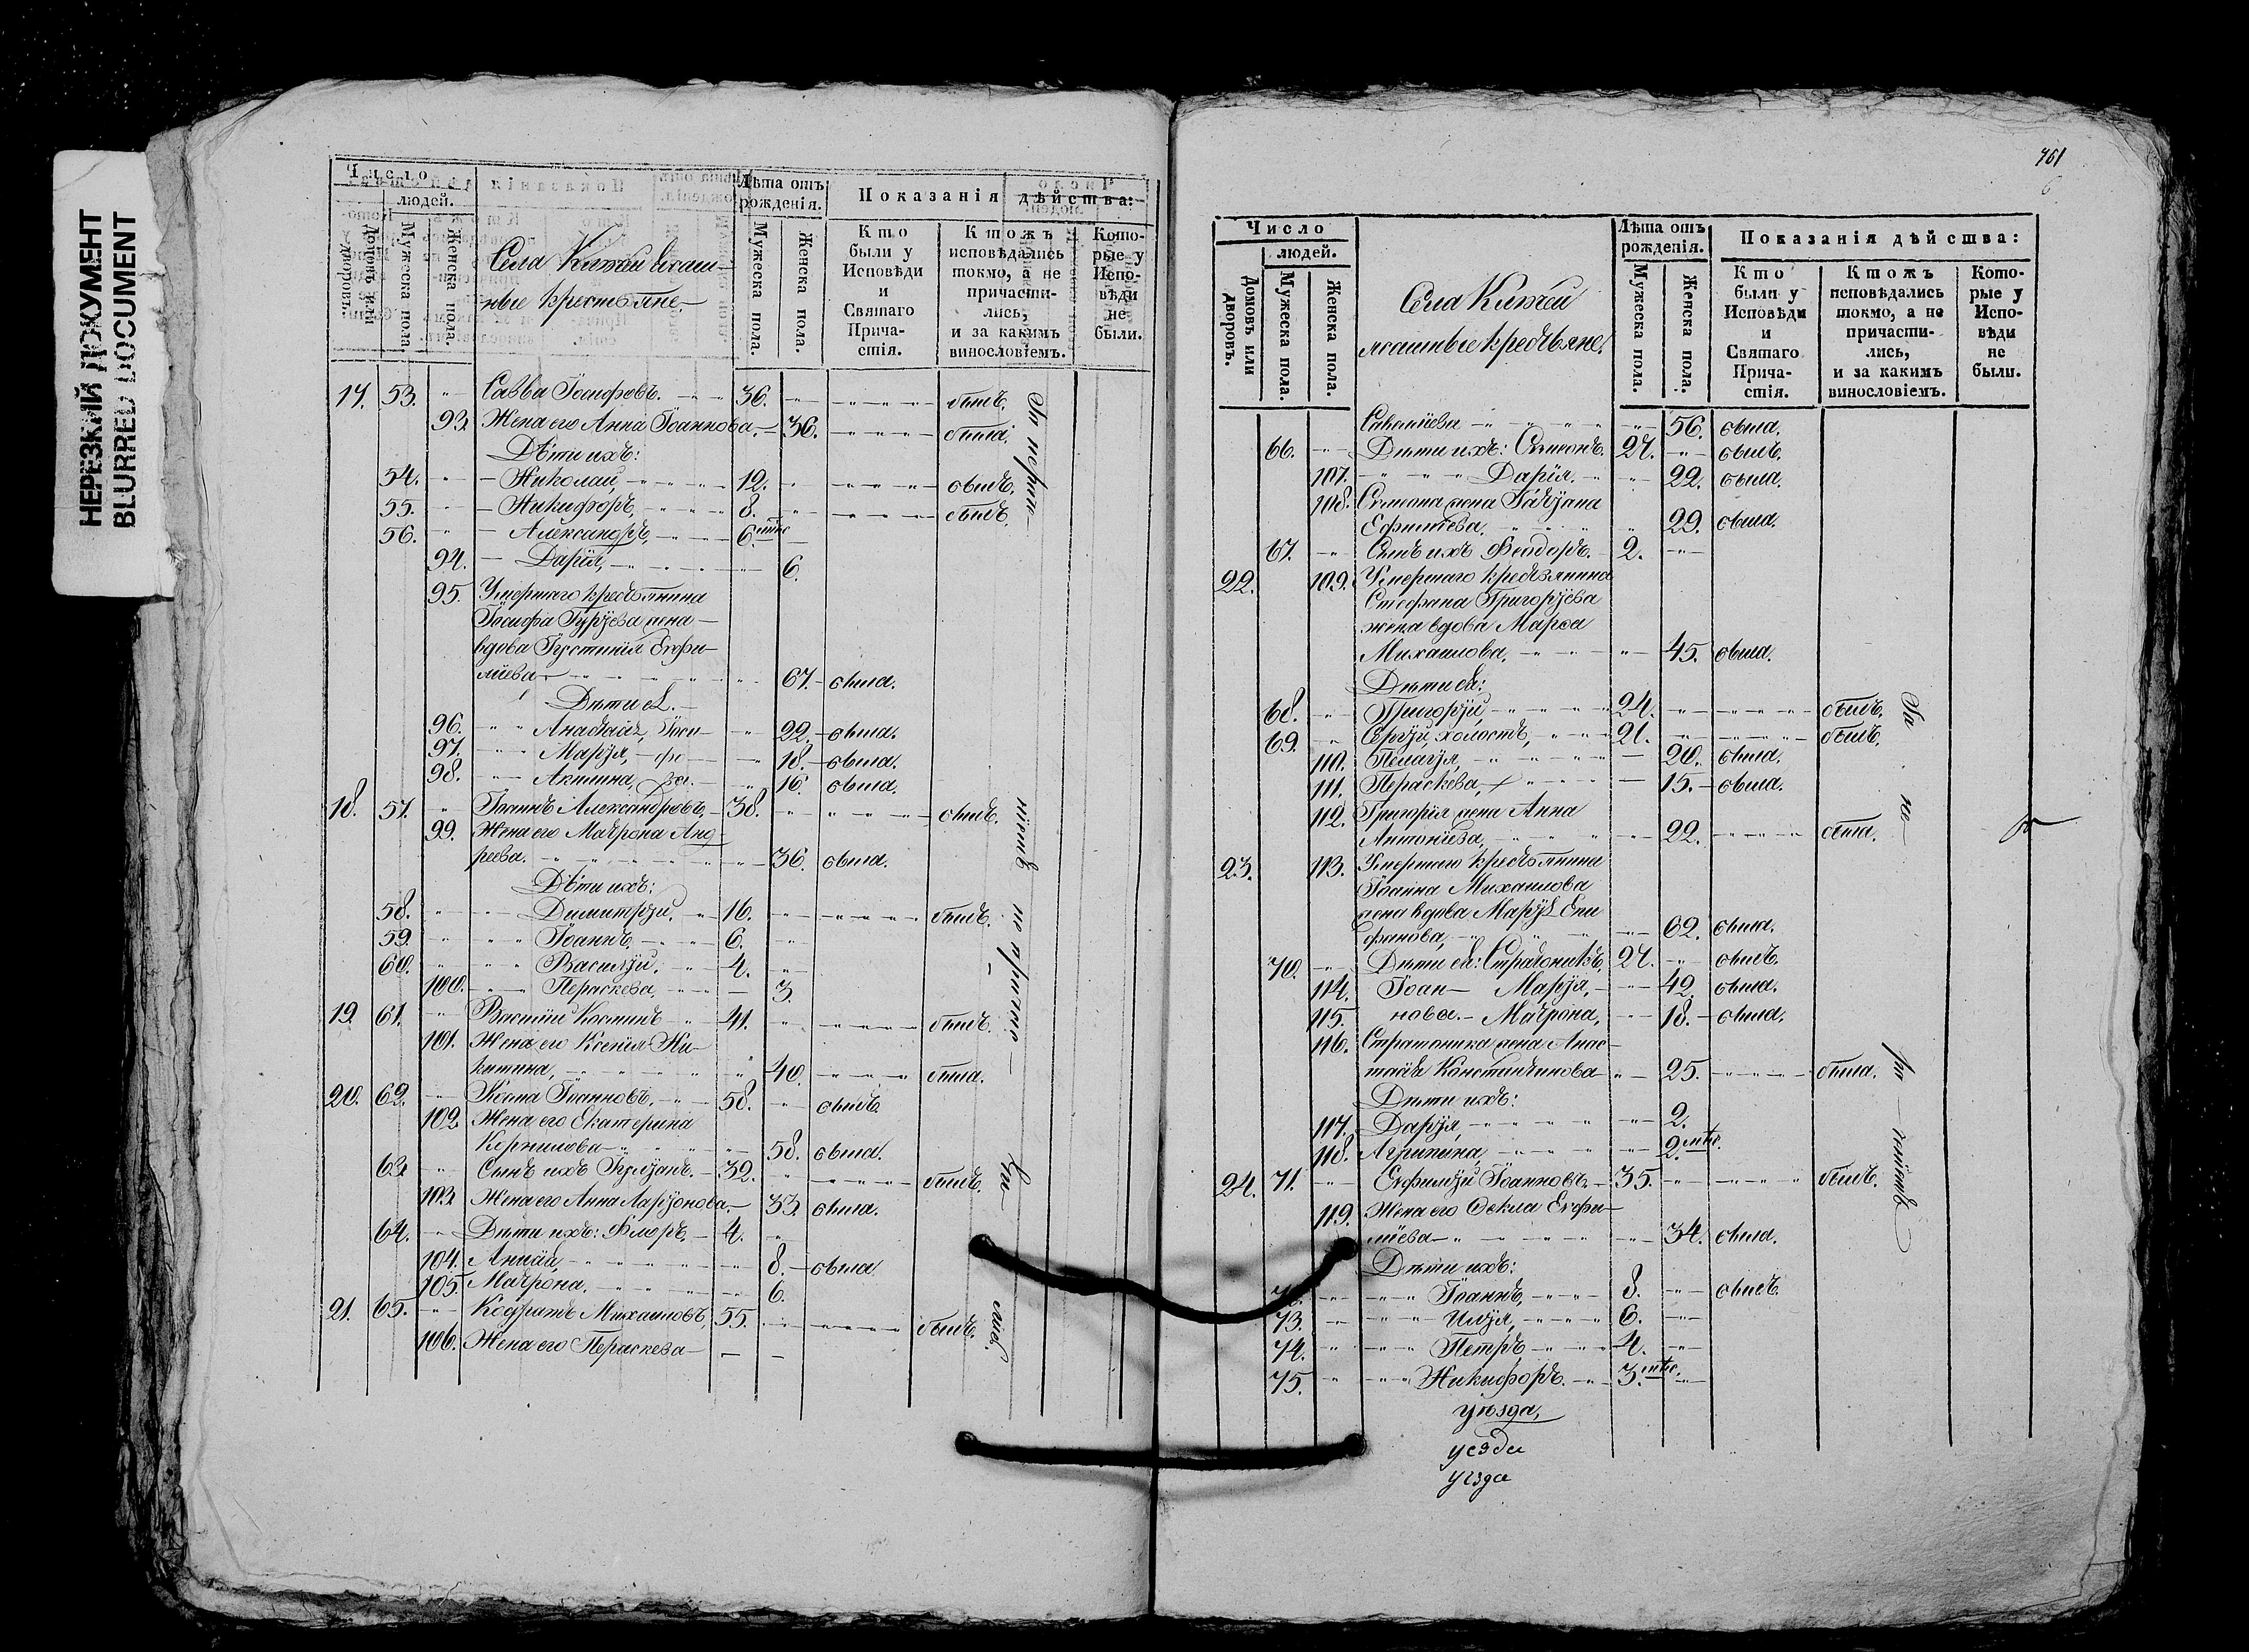 НЕРЕЗКИЙ ДОКУМЕНТ
BLURRED DOCUMENT
Число
людей.
Домовъ или дворовъ.
Мужеска пола.
Женска пола.
Села Китай ясаш-
ные крестьяне.
Лѣта отъ рожденія.
Мужеска пола.
Женска пола.
Показанія дѣйства:
Кто были у Исповѣди и Святаго Прича-стія.
Ктожъ исповѣдались токмо, а не причасти-лись, и за какимъ винословіемъ.
Кото-рые у Испо-вѣди не были.
17. 53. Савва Іосифовъ. 36. былъ.
93. Жена его Анна Іоаннова, 36. была.
Дѣти ихъ:
54. Николай, 12. былъ.
55. Никифоръ, 8. былъ.
56. Александръ, 6 мѣс
94. Дарія, 6.
95. Умершаго крестьянина
Іосифа Гурьева жена
вдова Іустинія Евфи-
міева 67. была.
Дѣти ея.
96. Анастасія, Іоси- 22. была.
97. Марія, фо- 18. была.
98. Акилина, вы. 16. была.
18. 57. Іоаннъ Александровъ, 38. былъ.
99. Жена его Матрона Анд-
реева. 36. была.
Дѣти ихъ:
58. Димитрій, 16. былъ.
59. Іоаннъ, 6.
60. Василій. 4.
100. Параскева, 3.
19. 61. Косминъ 41. былъ.
101. Жена его Ксенія Ни-
китина, 40. была.
20. 62. Косма Іоанновъ, 58. былъ.
102. Жена его Екатерина
Корнилова 58. была.
63. Сынъ ихъ Іуліанъ. 32. былъ.
103. Жена его Анна Ларіонова, 33. была.
64. Дѣти ихъ: Флоръ, 4.
104. 8. была
105. Матрона. 6.
21. 65. Кодратъ Михайловъ, 55. былъ.
106. Жена его Параскева
За
по
761
6
Число
людей.
Домовъ или дворовъ.
Мужеска пола.
Женска пола.
Села Китай
ясашные крестьяне.
Лѣта отъ рожденія.
Мужеска пола.
Женска пола.
Показанія дѣйства:
Кто были у Исповѣди и Святаго Прича-стія.
Ктожъ исповѣдались токмо, а не причасти-лись, и за какимъ винословіемъ.
Кото-рые у Испо-вѣди не были.
Саватіева 56. была.
66. Дѣти ихъ: Симеонъ. 27. былъ.
107. Дарія. 22. была.
108. Симеона жена Татіана
Ефимтева, 29. была.
67. Сынъ ихъ Феодоръ. 2.
22. 109. Умершаго крестьянина
Стефана Григорьева
жена вдова Марѳа
Михайлова, 45. была.
Дѣти ея:
68. Григорій, 24. былъ.
69. Сергій, холостъ, 21. былъ.
110. Пелагія, 20. была.
111. Параскева, 15. была.
112. Григорія жена Анна
Антоніева, 22. была.
23. 113. Умершаго крестьянина
Іоанна Михайлова
жена вдова Марія Епи
фанова, 62. была.
70. Дѣти ея: Стратоникъ, 27. былъ.
114. Іоан- Марія, 42. была.
115. нова. Матрона, 18. была.
116. Стратоника жена Анас-
тасія Константинова 25. была.
Дѣти ихъ:
117. Дарія, 2.
118. Агрипина, 2. мѣс.
24. 71. Евфимій Іоанновъ, 35. былъ.
119. Жена его Ѳекла Евфи-
міева 34. была.
Дѣти ихъ:
72. Іоаннъ, 8. былъ
73. Илія, 6.
74. Петръ 4.
75. Никифоръ. 3. мѣс.
За
уѣзда,
уезда
уезда